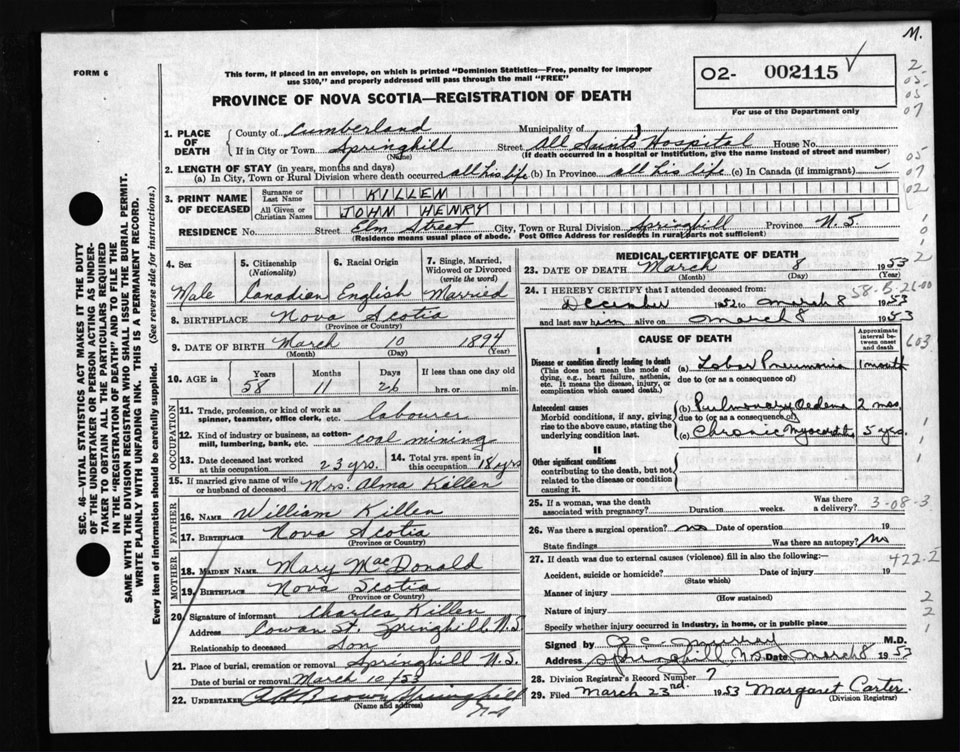 M.
FORM 6
This form, if placed in an envelope, on which is printed "Dominion Statistics—Free, penalty for improper
use $300," and properly addressed will pass through the mail "FREE"
02- 002115
For use of the Department only
PROVINCE OF NOVA SCOTIA—REGISTRATION OF DEATH
2
05
07
05
07
02
1. PLACE OF DEATH
County of Cumberland Municipality of
If in City or Town Springhill Street All Saints Hospital House No.
(Name) (If death occurred in a hospital or institution, give the name instead of street and number)
2. LENGTH OF STAY (in years, months and days)
(a) In City, Town or Rural Division where death occurred all his life (b) In Province all his life (c) In Canada (if immigrant)
3. PRINT NAME OF DECEASED
Surname or Last Name KILLEN
All Given or Christian Names JOHN HENRY
RESIDENCE No. Street Elm Street City, Town or Rural Division Springhill Province N.S.
(Residence means usual place of abode. Post Office Address for residents in rural parts not sufficient)
4. Sex Male
5. Citizenship (Nationality) Canadian
6. Racial Origin English
7. Single, Married, Widowed or Divorced (write the word) Married
8. BIRTHPLACE Nova Scotia
(Province or Country)
9. DATE OF BIRTH March 10 1894
(Month) (Day) (Year)
10. AGE in Years 58 Months 11 Days 26 If less than one day old hrs. or min.
OCCUPATION
11. Trade, profession, or kind of work as spinner, teamster, office clerk, etc. labourer
12. Kind of industry or business, as cotton-mill, lumbering, bank, etc. coal mining
13. Date deceased last worked at this occupation 23 yrs.
14. Total yrs. spent in this occupation 18 yrs
15. If married give name of wife or husband of deceased Mrs. Alma Killen
FATHER
16. NAME William Killen
17. BIRTHPLACE Nova Scotia
(Province or Country)
MOTHER
18. MAIDEN NAME Mary MacDonald
19. BIRTHPLACE Nova Scotia
(Province or Country)
20. Signature of informant Charles Killen
Address Cowan St. Springhill, N.S.
Relationship to deceased Son
21. Place of burial, cremation or removal Springhill N.S.
Date of burial or removal March 10/53
22. UNDERTAKER Brown Springhill
(Name and address) N.S.
MEDICAL CERTIFICATE OF DEATH
23. DATE OF DEATH March 8 1953
(Month) (Day) (Year)
24. I HEREBY CERTIFY that I attended deceased from: 58-5-21-00
December 1952 to March 8 1953
and last saw him alive on March 8 1953
CAUSE OF DEATH
Approximate interval between onset and death
603
I
Disease or condition directly leading to death
(This does not mean the mode of dying, e.g., heart failure, asthenia, etc. It means the disease, injury, or complication which caused death.)
(a) Lobar Pneumonia 1 month
due to (or as a consequence of)
Antecedent causes
Morbid conditions, if any, giving rise to the above cause, stating the underlying condition last.
(b) Pulmonary Oedema 2 mos
due to (or as a consequence of)
(c) Chronic Myocarditis 5 yrs.
II
Other significant conditions
contributing to the death, but not related to the disease or condition causing it.
25. If a woman, was the death associated with pregnancy? Duration weeks. Was there a delivery? 3-08-3
26. Was there a surgical operation? no Date of operation 19
State findings Was there an autopsy? no
27. If death was due to external causes (violence) fill in also the following:— 422.2
Accident, suicide or homicide? Date of injury 19
(State which)
Manner of injury
(How sustained)
Nature of injury
Specify whether injury occurred in industry, in home, or in public place
Signed by J. C. Murray M.D.
Address Springhill, N.S. Date March 8 1953
28. Division Registrar's Record Number 7
29. Filed March 23rd. 1953 Margaret Carter.
(Division Registrar)
SEC. 46—VITAL STATISTICS ACT MAKES IT THE DUTY
OF THE UNDERTAKER OR PERSON ACTING AS UNDER-
TAKER TO OBTAIN ALL THE PARTICULARS REQUIRED
IN THE "REGISTRATION OF DEATH" AND TO FILE THE
SAME WITH THE DIVISION REGISTRAR WHO SHALL ISSUE THE BURIAL PERMIT.
WRITE PLAINLY WITH UNFADING INK. THIS IS A PERMANENT RECORD.
Every item of information should be carefully supplied. (See reverse side for instructions.)